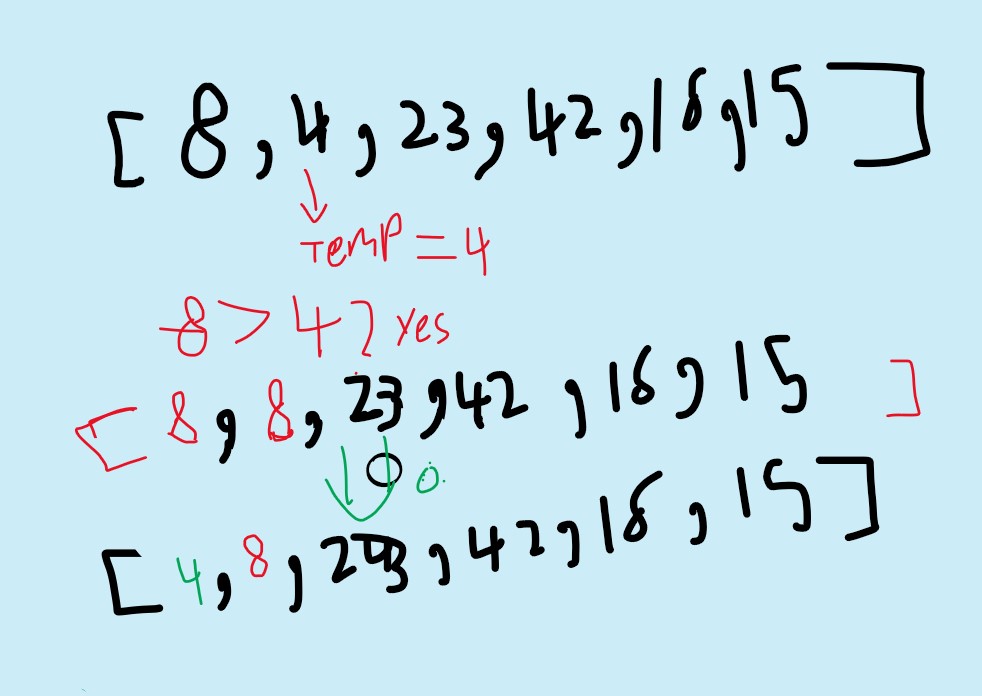 [ 8 , 4 , 23 , 42 , 16 , 15 ]
Temp = 4
8 > 4 ? Yes
[ 8 , 8 , 23 , 42 , 16 , 15 ]
0
[ 4 , 8 , 23 , 42 , 16 , 15 ]